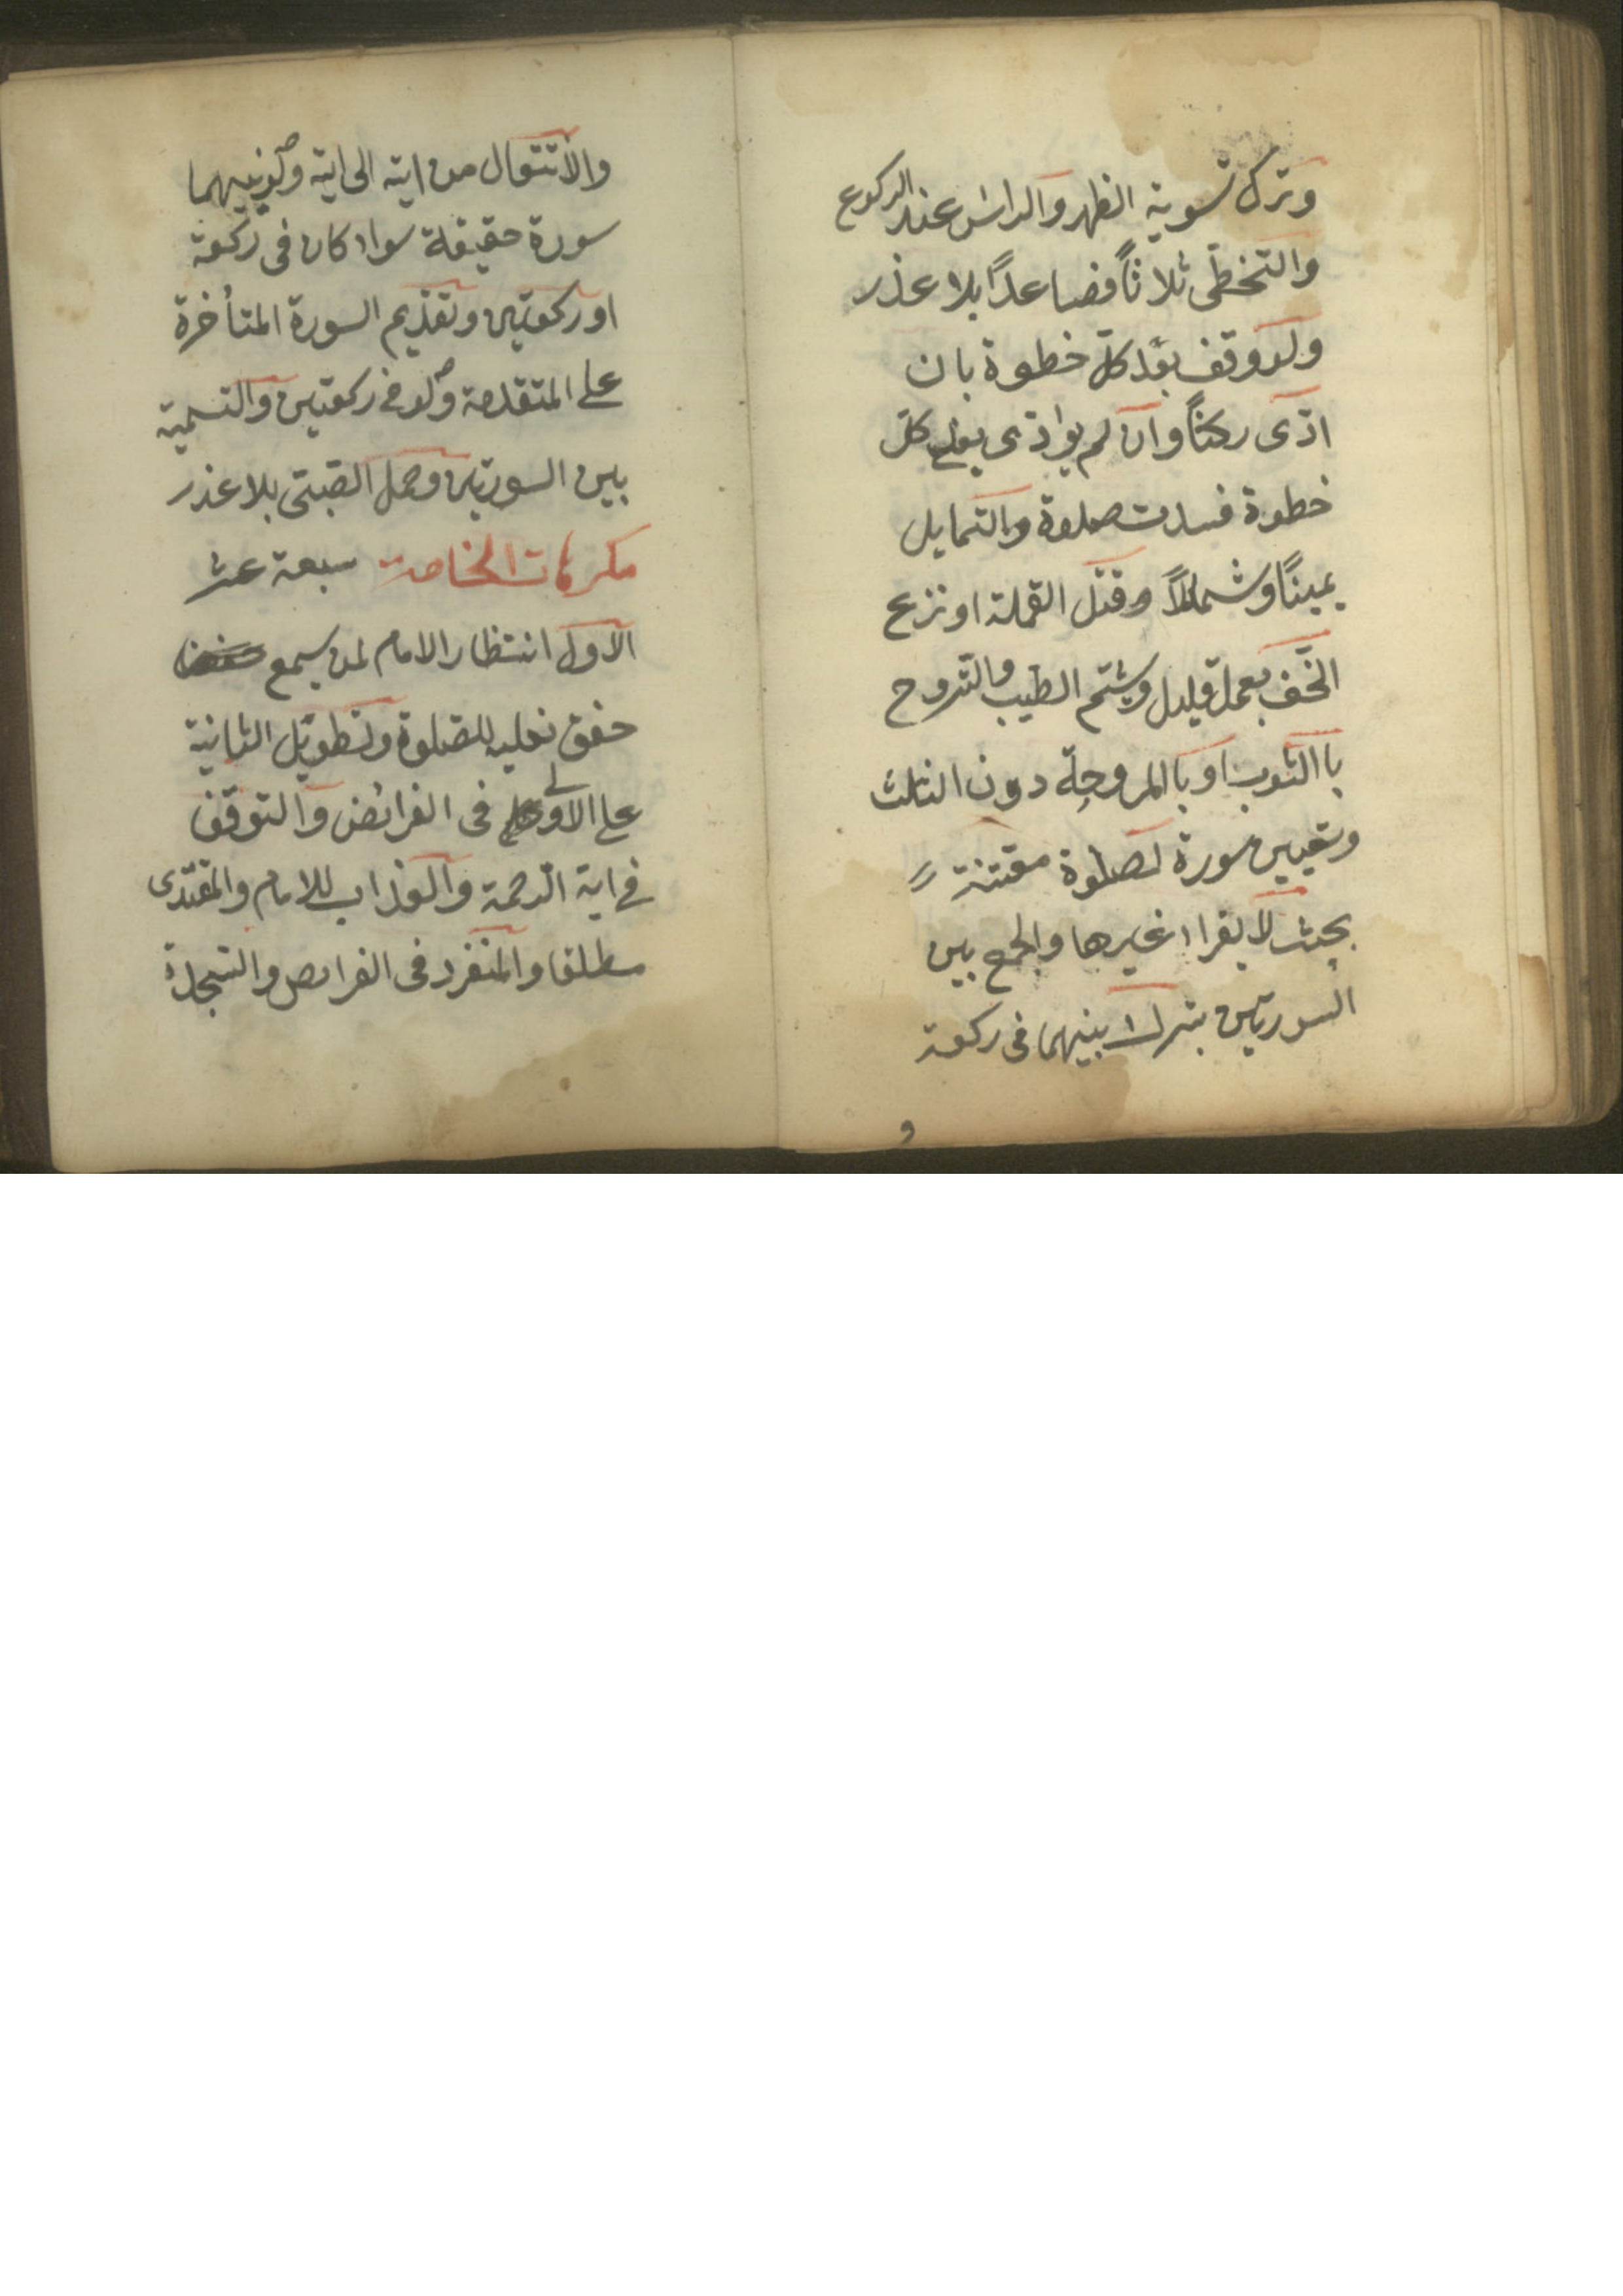 وترك تسوية الظهر والراس عند الركوع
والتخطى ثلاثاً فصاعداً بلا عذر
ولو وقف بعد كل خطوة بان
ادّى ركناً وان لم يوادى بعد كل
خطوة فسدت صلوة والتمايل
يميناً وشمالاً وقتل القملة او نزع
الخف بعمل قليل ويشتم الطيب والتروح
باالثوب او باالمروحة دون الثلث
وتعيين سورة لصلوة معينة
بحيث لا يقراء غيرها والجمع بين
السورتين بترك بينهما فى ركعة
و
والانتقال من اية الى اية ولو بينهما
سورة حقيقة سواء كان فى ركعة
او ركعتين وتقديم السورة المتأخرة
على المتقدمة ولو فى ركعتين والتسمية
بين السورتين وحمل الصبىّ بلا عذر
مكرهات الخاصة سبعة عشر
الاول انتظار الامام لمن يسمع
خفق نعليه للصلوة وتطويل الثانية
على الاولى فى الفرائض والتوقف
فى اية الرحمة والعذاب للامام والمقتدى
مطلقا والمنفرد فى الفرايض والسجدة